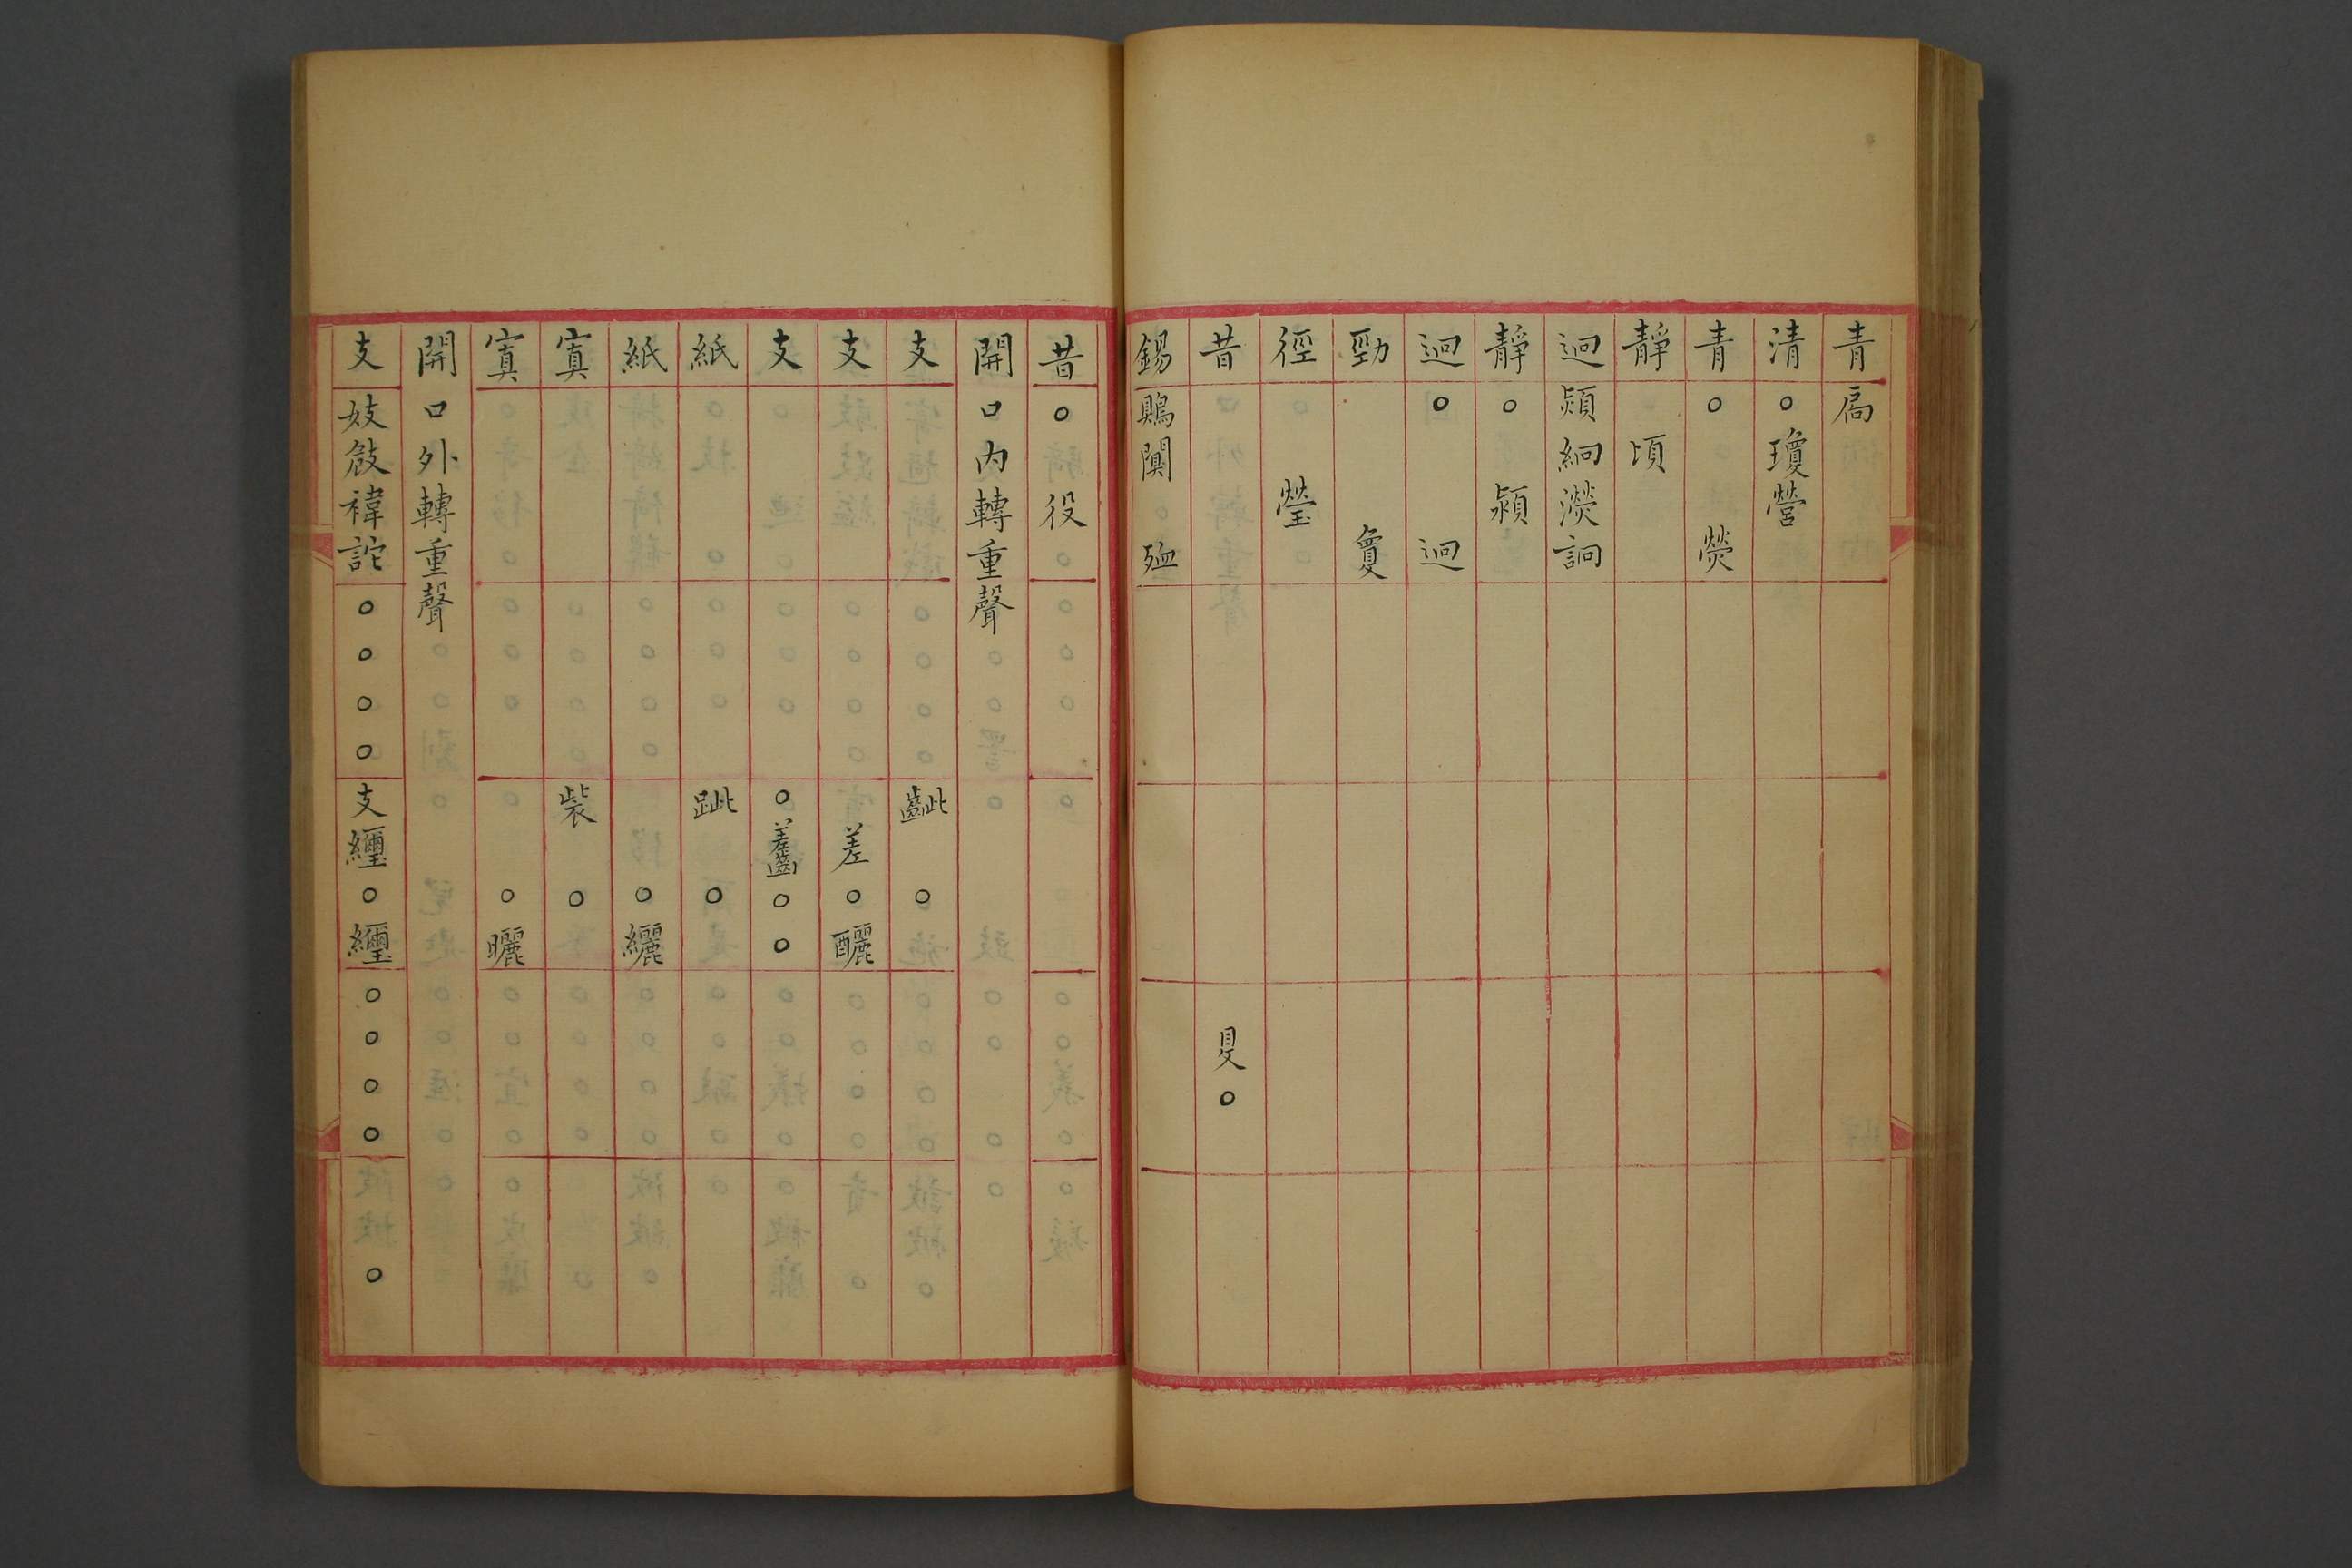 青扃
清○瓊營
青○熒
靜頃
迥熲絅濙詗
靜○潁
迥○迥
勁敻
徑瑩
昔𥄎○
錫鶪闃殈
昔○役
開口內轉重聲
支齜○
支差○釃
支○䶜○○
紙跐○
紙○纚
寘㧘○
寘○曬
開口外轉重聲
支妓敍禕詑○○○○支纏○纏○○○○○